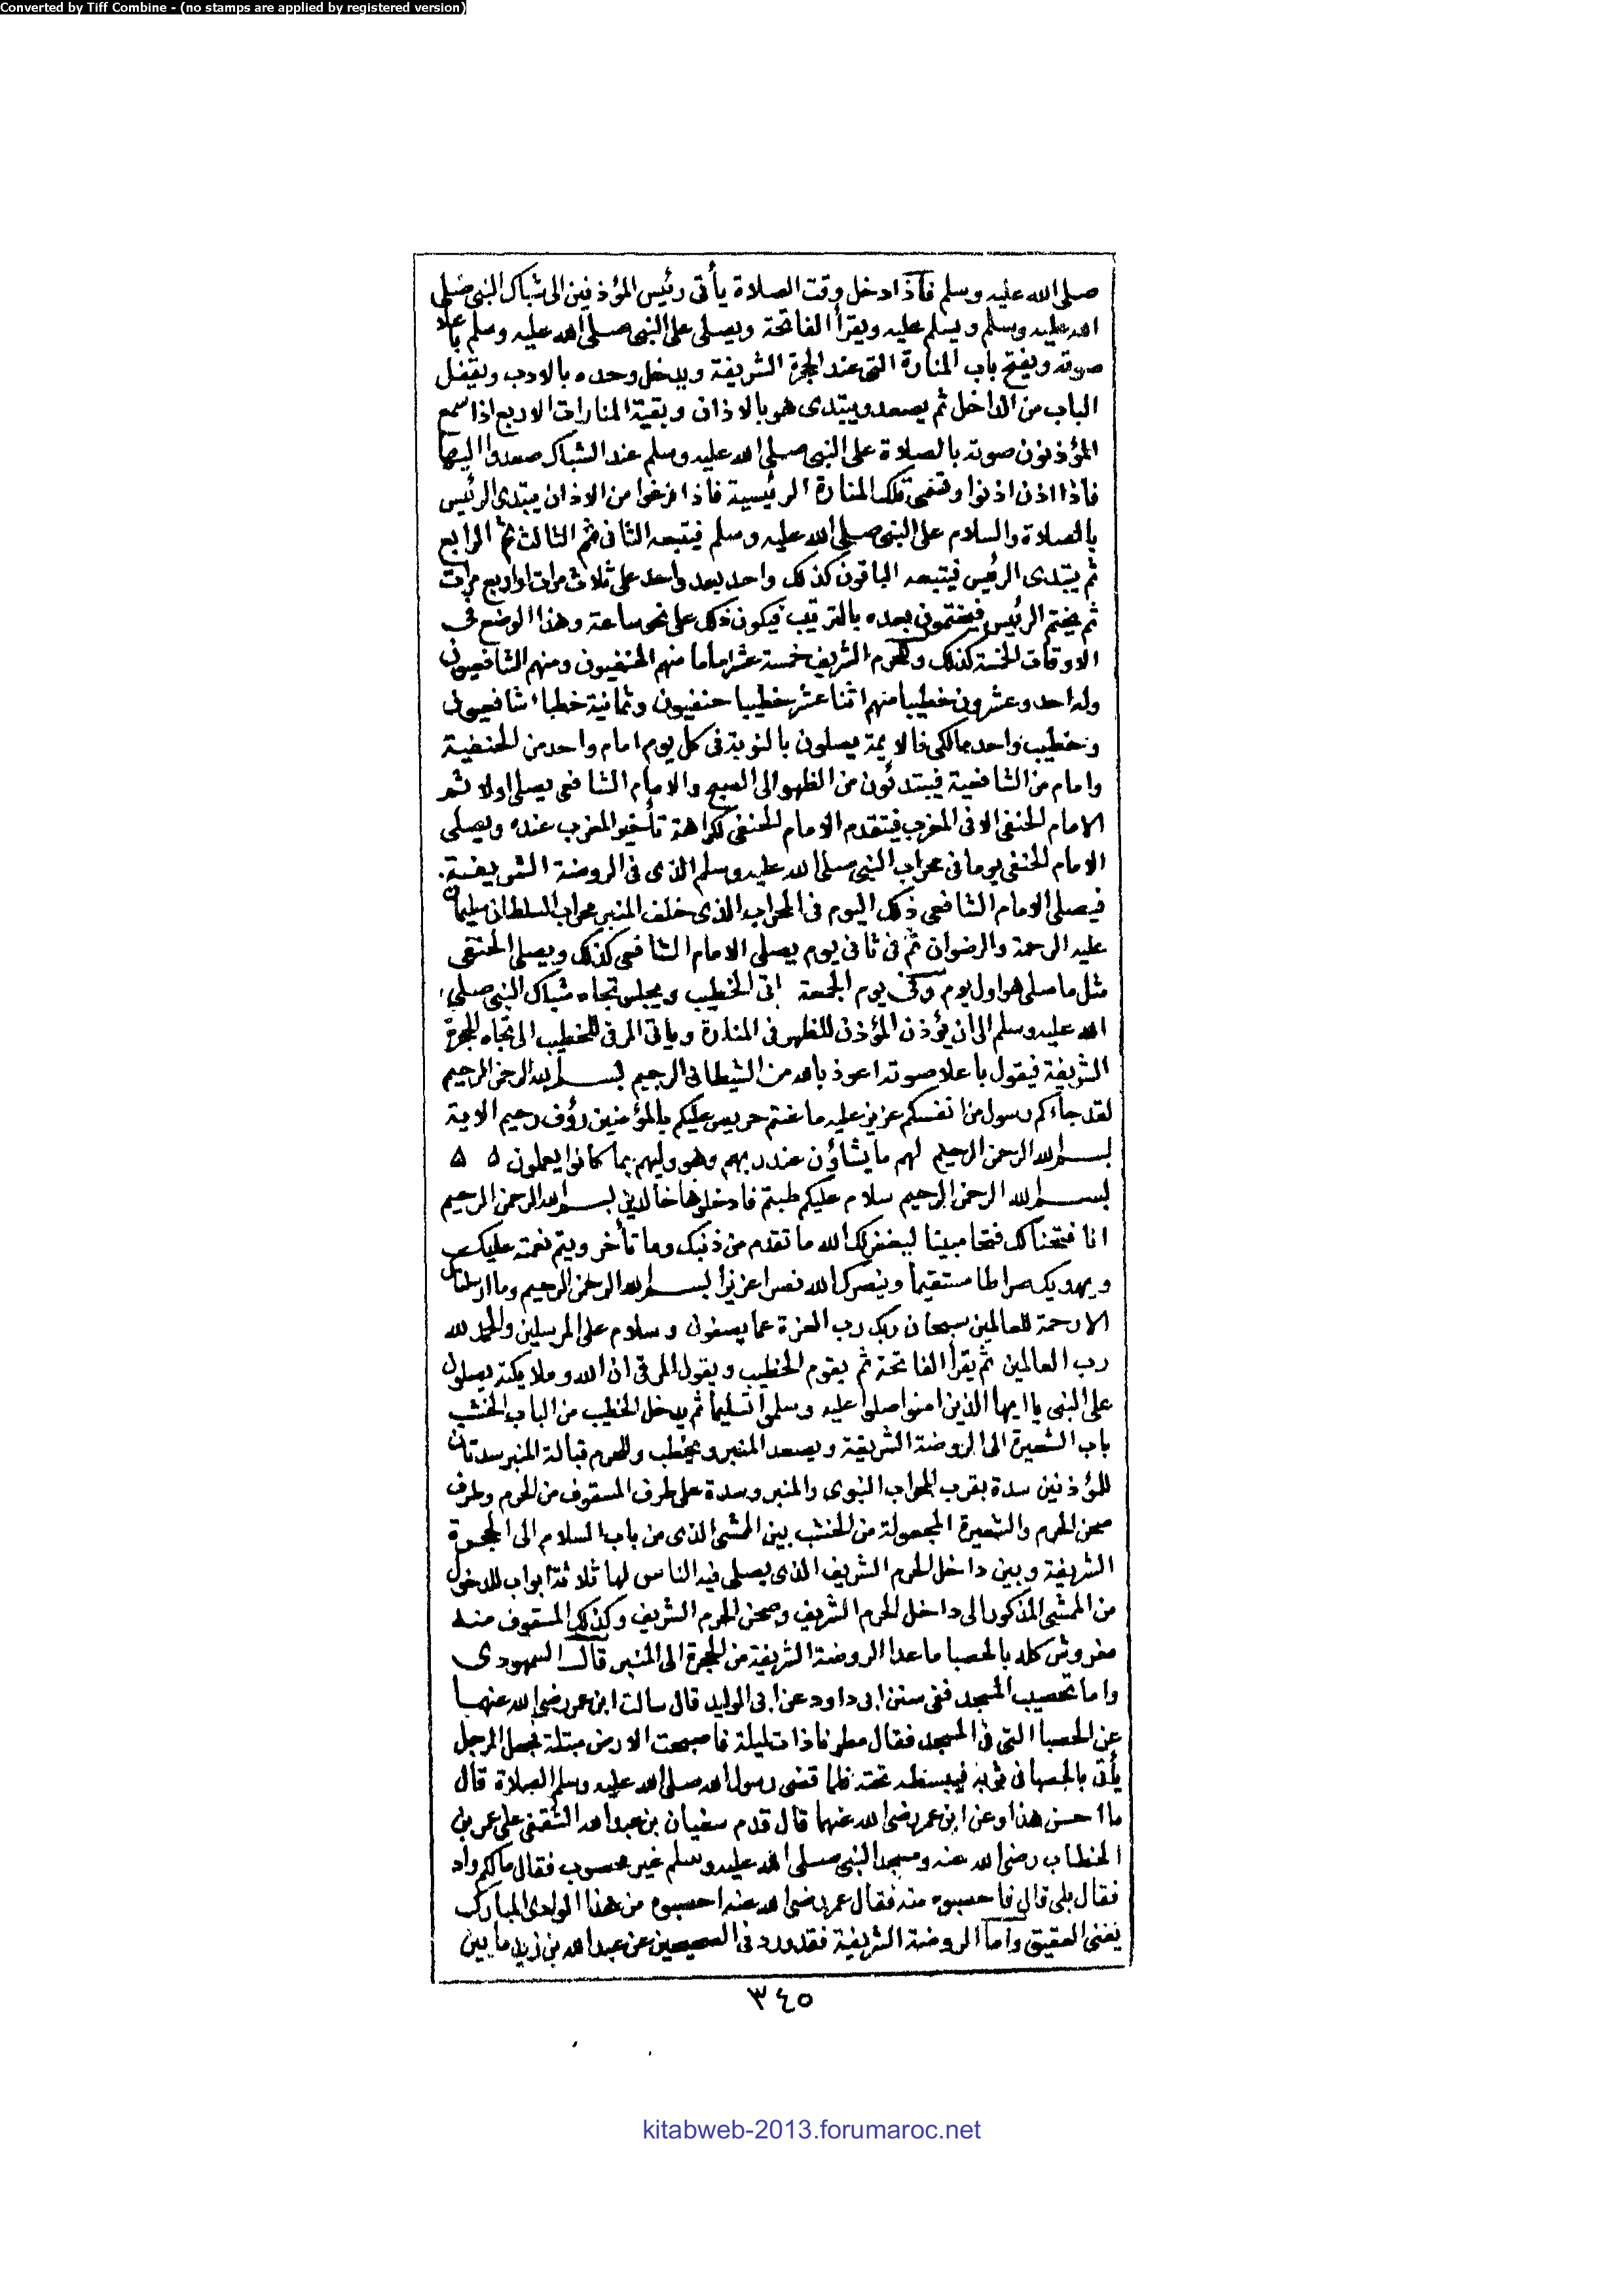 Converted by Tiff Combine - (no stamps are applied by registered version)
صلى الله عليه وسلم فاذا دخل وقت الصلاة يأتى رئيس المؤذنين الى شباك النبى صلى
الله عليه وسلم ويسلم عليه ويقرأ الفاتحة ويصلى على النبى صلى الله عليه وسلم باعلا
صوته ويفتح باب المنارة التى عند الحجرة الشريفة ويدخل وحده بالادب ويقفل
الباب من الداخل ثم يصعد ويبتدى هو بالاذان وبقية المنارات الاربع اذا سمع
المؤذنون صوته بالصلاة على النبى صلى الله عليه وسلم عند الشباك صعدوا اليها
فاذا اذن اذنوا وتسمى تلك المنارة الرئيسية فاذا فرغوا من الاذان يبتدى الرئيس
بالصلاة والسلام على النبى صلى الله عليه وسلم فيتبعه الثانى ثم الثالث ثم الرابع
ثم يبتدى الرئيس فيتبعه الباقون كذلك واحد بعد واحد على ثلاث مرات او اربع مرات
ثم يختم الرئيس فيختمون بعده بالترتيب فيكون ذلك على نحو ساعة وهذا الوضع فى
الاوقات الخمسة كذلك وللحرم الشريف خمسة عشر اماما منهم الحنفيون ومنهم الشافعيون
وله احد وعشرون خطيبا منهم اثنا عشر خطيبا حنفيون وثمانية خطباء شافعيون
وخطيب واحد مالكى فالايمة يصلون بالنوبة فى كل يوم امام واحد من الحنفية
وامام من الشافعية فيبتدئون من الظهر الى الصبح والامام الشافعى يصلى اولا ثم
الامام الحنفى الا فى المغرب فيتقدم الامام الحنفى لكراهة تأخير المغرب عنده ويصلى
الامام الحنفى يوما فى محراب النبى صلى الله عليه وسلم الذى فى الروضة الشريفة.
فيصلى الامام الشافعى ذلك اليوم فى المحراب الذى خلف المنبر محراب السلطان سليمان
عليه الرحمة والرضوان ثم فى ثانى يوم يصلى الامام الشافعى كذلك ويصلى الحنفى
مثل ما صلى هو اول يوم وفى يوم الجمعة اتى الخطيب ويجلس تجاه شباك النبى صلى
الله عليه وسلم الى ان يؤذن المؤذن للظهر فى المنارة وياتى المرقى للخطيب الى تجاه الحجرة
الشريفة فيقول باعلا صوته اعوذ بالله من الشيطان الرجيم بسم الله الرحمن الرحيم
لقد جاءكم رسول من انفسكم عزيز عليه ما عنتم حريص عليكم بالمؤمنين رؤف رحيم الاية
بسم الله الرحمن الرحيم لهم ما يشاؤن عند ربهم وهو وليهم بما كانوا يعملون ٥ ٥
بسم الله الرحمن الرحيم سلام عليكم طبتم فادخلوها خالدين بسم الله الرحمن الرحيم
انا فتحنا لك فتحا مبينا ليغفر لك الله ما تقدم من ذنبك وما تأخر ويتم نعمته عليك
ويهديك صراطا مستقيما وينصرك الله نصرا عزيزا بسم الله الرحمن الرحيم وما ارسلناك
الا رحمة للعالمين سبحان ربك رب العزة عما يصفون وسلام على المرسلين والحمد لله
رب العالمين ثم يقرأ الفاتحة ثم يقوم الخطيب ويقول المرقى ان الله وملايكته يصلون
على النبى يا ايها الذين امنوا صلوا عليه وسلموا تسليما ثم يدخل الخطيب من الباب الخشب
باب الشعيرة الى الروضة الشريفة ويصعد المنبر ويخطب وللحرم قبالة المنبر سدتان
للمؤذنين سدة بقرب المحراب النبوى والمنبر وسدة على طرف المسقوف من الحرم وطرف
صحن الحرم والشعيرة المجعولة من الخشب بين المشى الذى من باب السلام الى الحجرة
الشريفة وبين داخل الحرم الشريف الذى يصلى فيه الناس لها ثلاثة ابواب للدخول
من الممشى المذكور الى داخل الحرم الشريف وصحن الحرم الشريف وكذلك المسقوف منه
مفروش كله بالحصبا ماعدا الروضة الشريفة من الحجرة الى المنبر قال السمهودى
واما تحصيب المسجد ففى سنن ابى داود عن ابى الوليد قال سالت ابن عمر رضى الله عنهما
عن الحصبا التى فى المسجد فقال مطرنا ذات ليلة فاصبحت الارض مبتلة فجعل الرجل
يأتى بالحصبا فى ثوبه فيبسطه تحته فلما قضى رسول الله صلى الله عليه وسلم الصلاة قال
ما احسن هذا وعن ابن عمر رضى الله عنهما قال قدم سفيان بن عبد الله الثقفى على عمر بن
الخطاب رضى الله عنه ومسجد النبى صلى الله عليه وسلم غير محصوب فقال ما لكم واد
فقال بلى قال فاحصبوه منه فقال عمر رضى الله عنه احصبوه من هذا الوادى المبارك
يعنى العقيق واما الروضة الشريفة فقد ورد فى الصحيحين عن عبد الله بن زيد ما بين
٣٤٥
kitabweb-2013.forumaroc.net